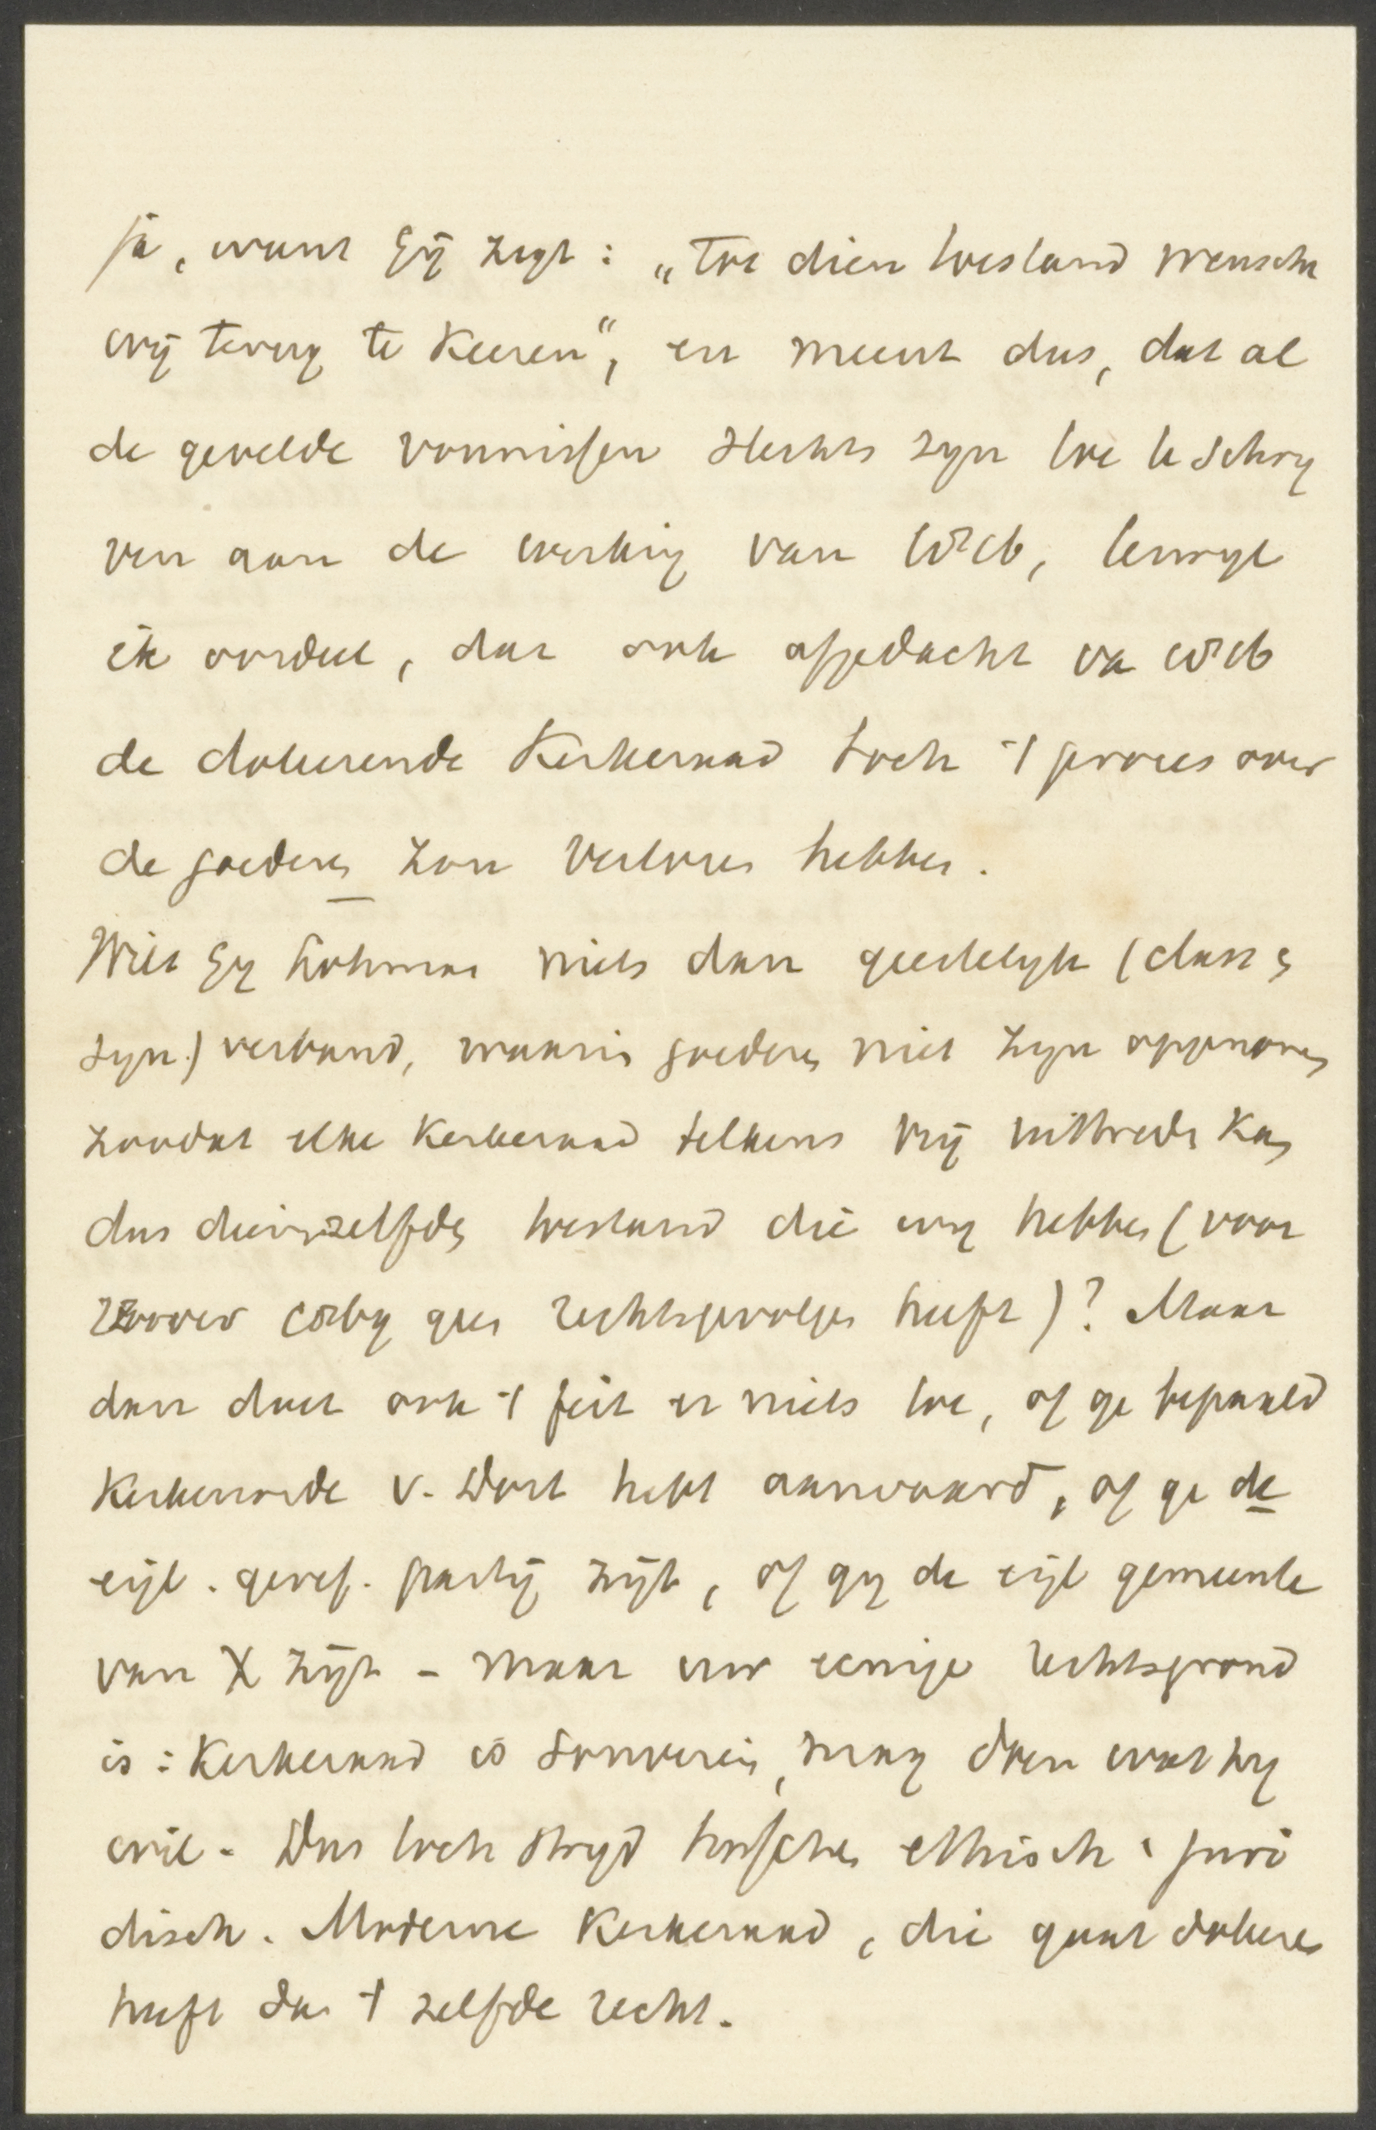 ja, want Gij zegt: „Tot dien toestand wensche
wij terug te keeren“, en meent dus, dat al
de gevelde vonnissen slechts zijn toe te schrij
ven aan de werking van terwijl
ik oordeel, dat ook afgedacht va
de doleerende Kerkeraad toch 't proces over
de goederen zou verloren hebben.
Wilt Gij Lohman niets dan geestelijk (class &
syn.) verband, waarin goederen niet zijn opgenomen
zoodat elke Kerkeraad telkens vrij uittreden kan,
dus dienzelfden toestand die wij hebben (voor
zoover geen rechtsgevolgen heeft)? Maar
dan doet ook 't feit er niets toe, of ge bepaald
Kerkenorde v. Dort hebt aanvaard, of ge de
eigl. geref. partij zijt, of gij de eigl gemeente
van X zijt - maar uw eenige rechtsgrond
is: Kerkeraad is souverein, mag doen wat hij
wil. Dus toch strijd tusschen ethisch & juri
disch. Moderne Kerkeraad, die gaat doleeren
heeft dan 't zelfde recht.